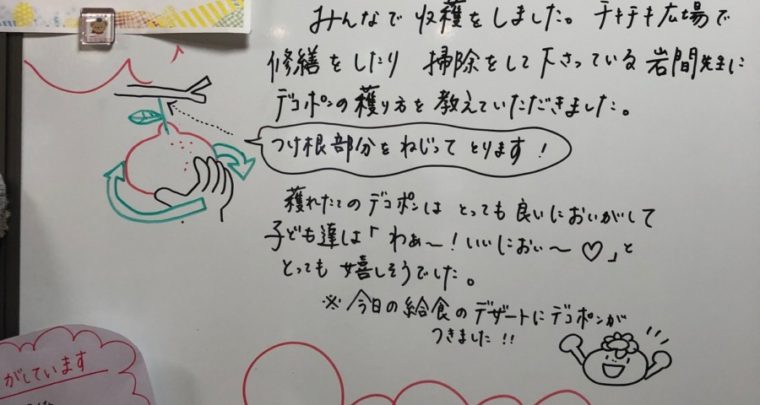 みんなで収穫をしました。テキテキ広場で
修繕をしたり 掃除をして下さっている岩間先生に
デコポンの獲り方を教えていただきました。
つけ根部分をねじってとります!
獲れたてのデコポンはとっても良いにおいがして
子ども達は「わぁ~!いいにおい~♡」と
とっても嬉しそうでした。
※今日の給食のデザートにデコポンが
つきました!!
がしています